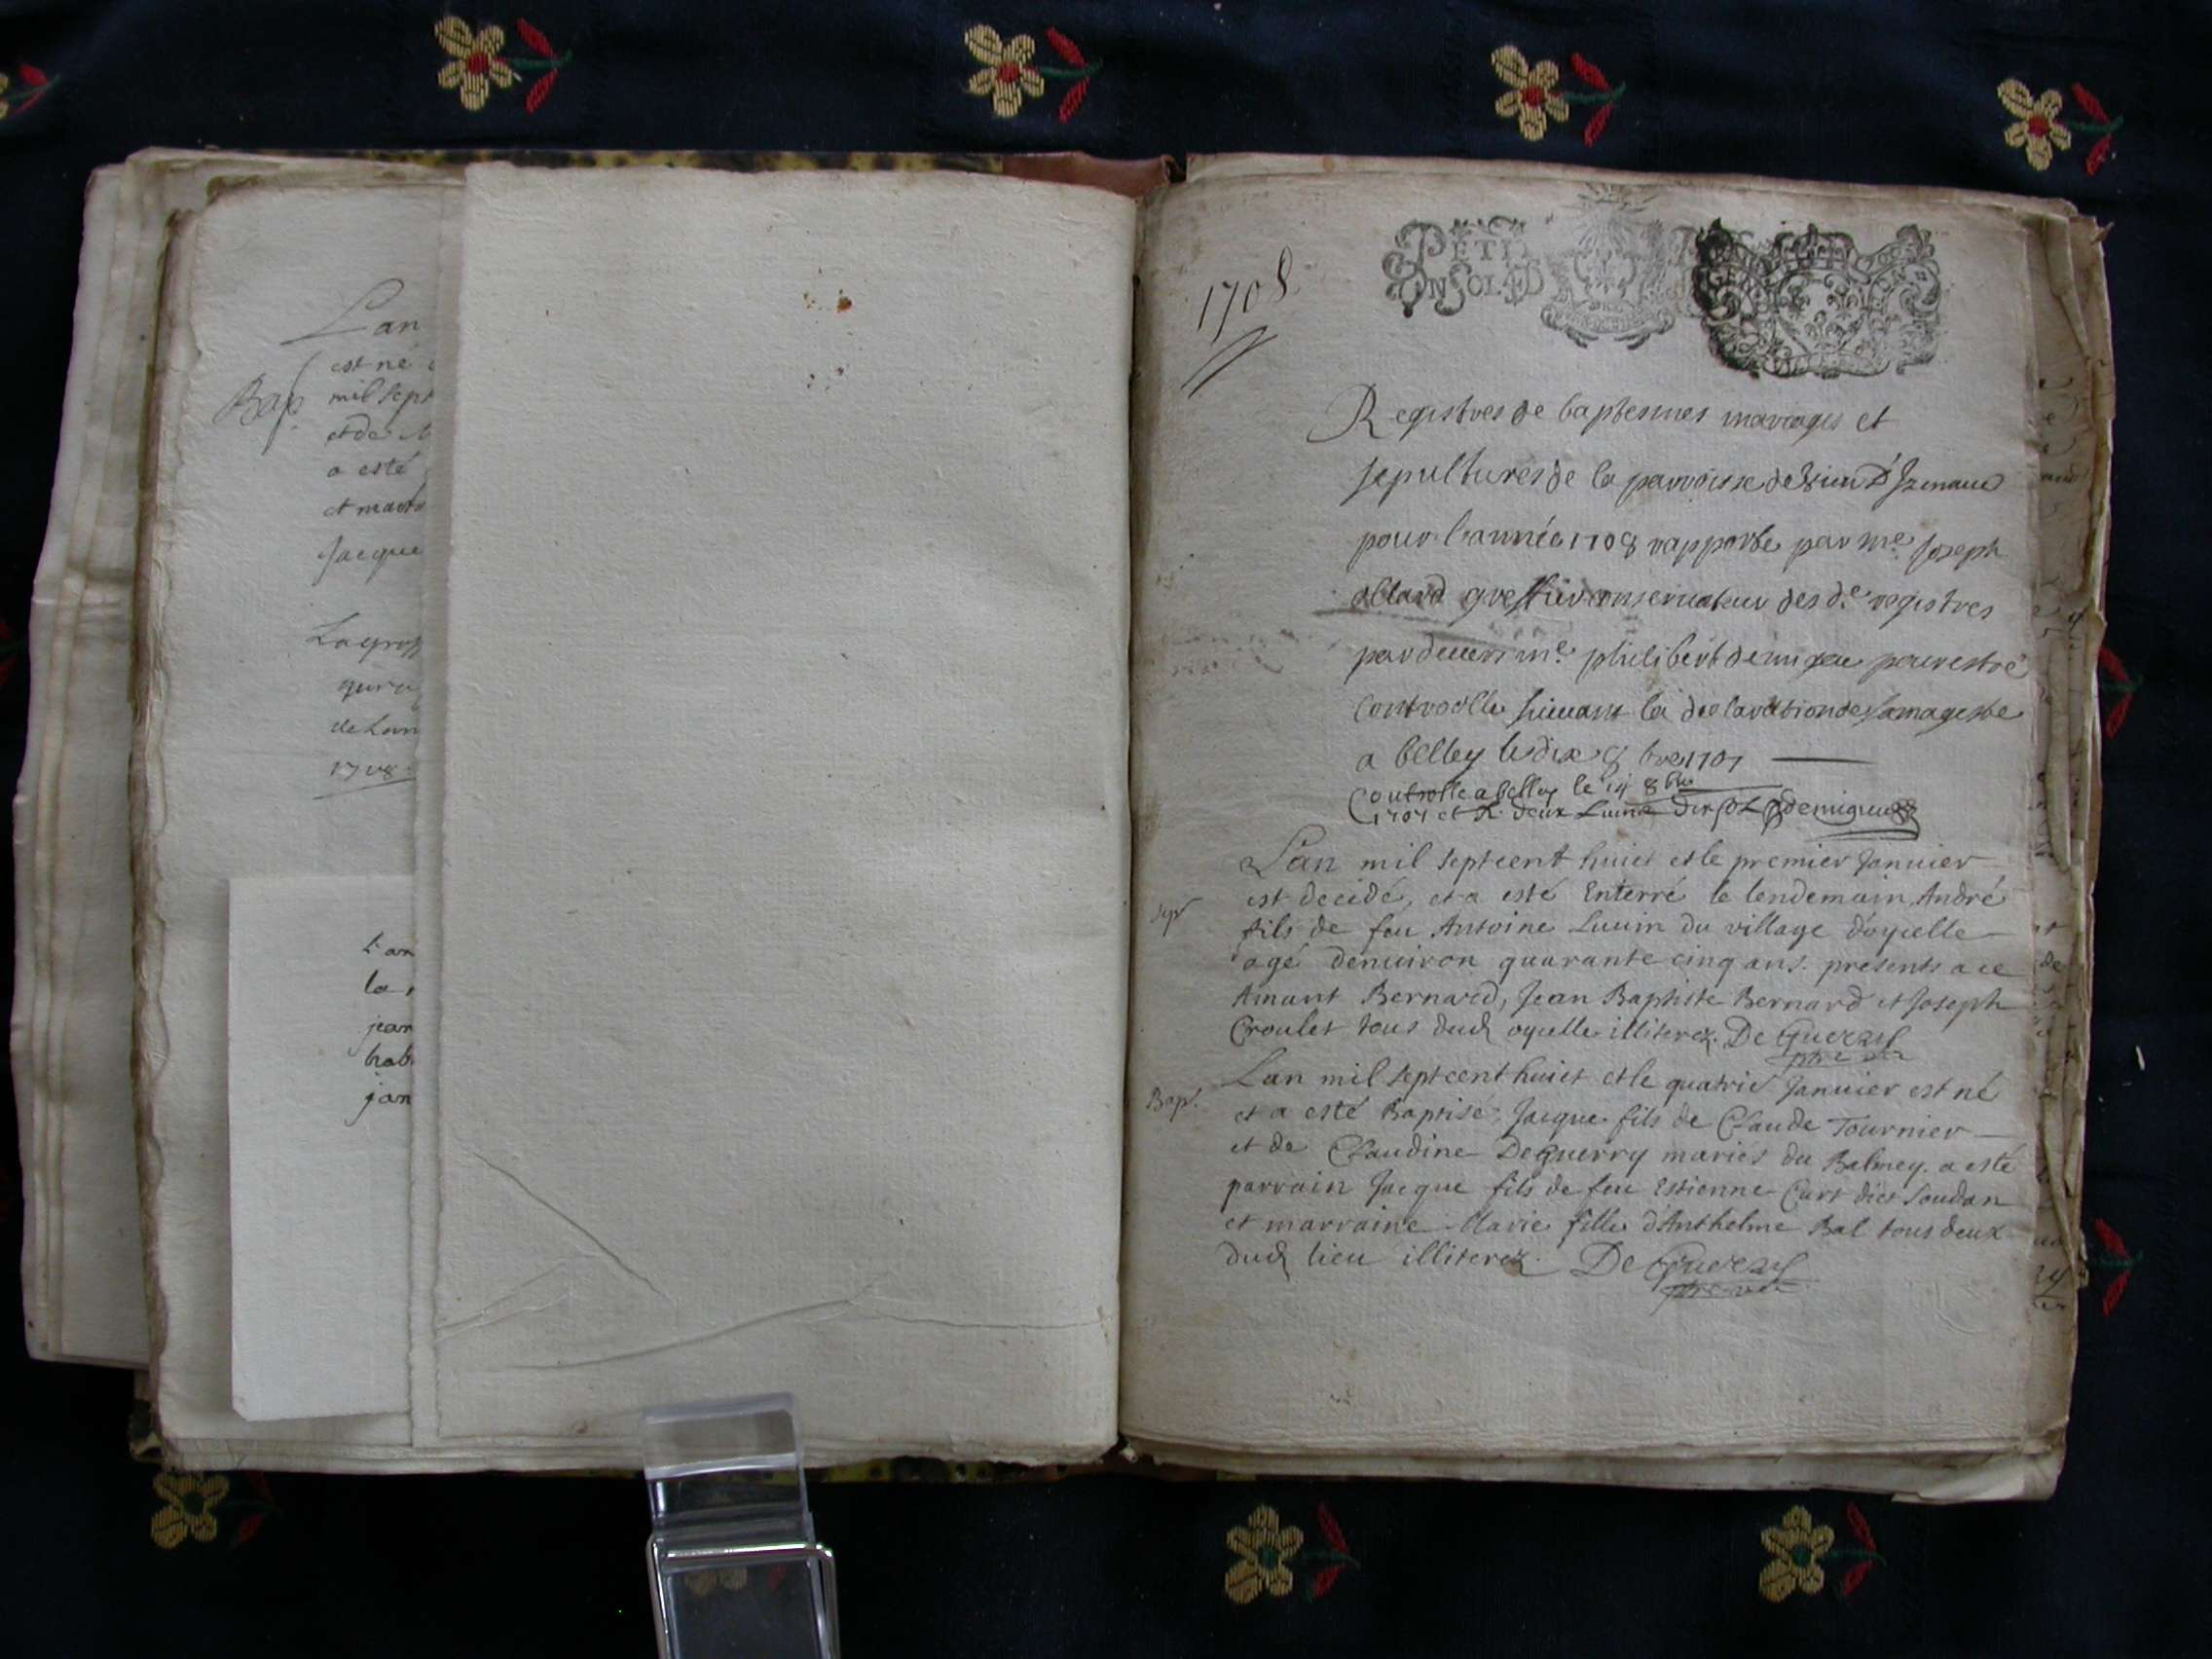 Lan
est né
Bap. mil sept
et de
a esté
et
Jacque
La
de
1708
L'an
la
jean
hab
jan
1708
PETIT
UN SOL
Registres de baptesmes mariages et
sepultures de la parroisse de d'Izenave
pour l'année 1708 rapporte par me Joseph
allard greffier conservateur des de registres
pardevers me philibert pour estre
controolle suivant la declaration de sa majeste
a belley le dix 8bre 1707
Controlle a belley le 14 8bre
1707 et R. deux
L'an mil sept cent huict et le premier Janvier
est decidé, et a esté Enterré le lendemain André
sep. fils de feu Antoine Luuin du village d'oyselle
agé denuiron quarante cinq ans. presents a ce
Amant Bernard, Jean Baptiste Bernard et Joseph
Croulet tous dud oyselle illiterez. De Guerry
ptre
Lan mil sept cent huict et le quatrie Januier est né
Bap. et a esté Baptisé, Jacque fils de Claude Tournier
et de Claudine DeGuerry mariés du Balmey. a esté
parrain Jacque fils de feu Estienne Curt dict Soudan
et marraine Marie fille d'Anthelme Bal tous deux
dud lieu illiterez. De Guerry
ptre